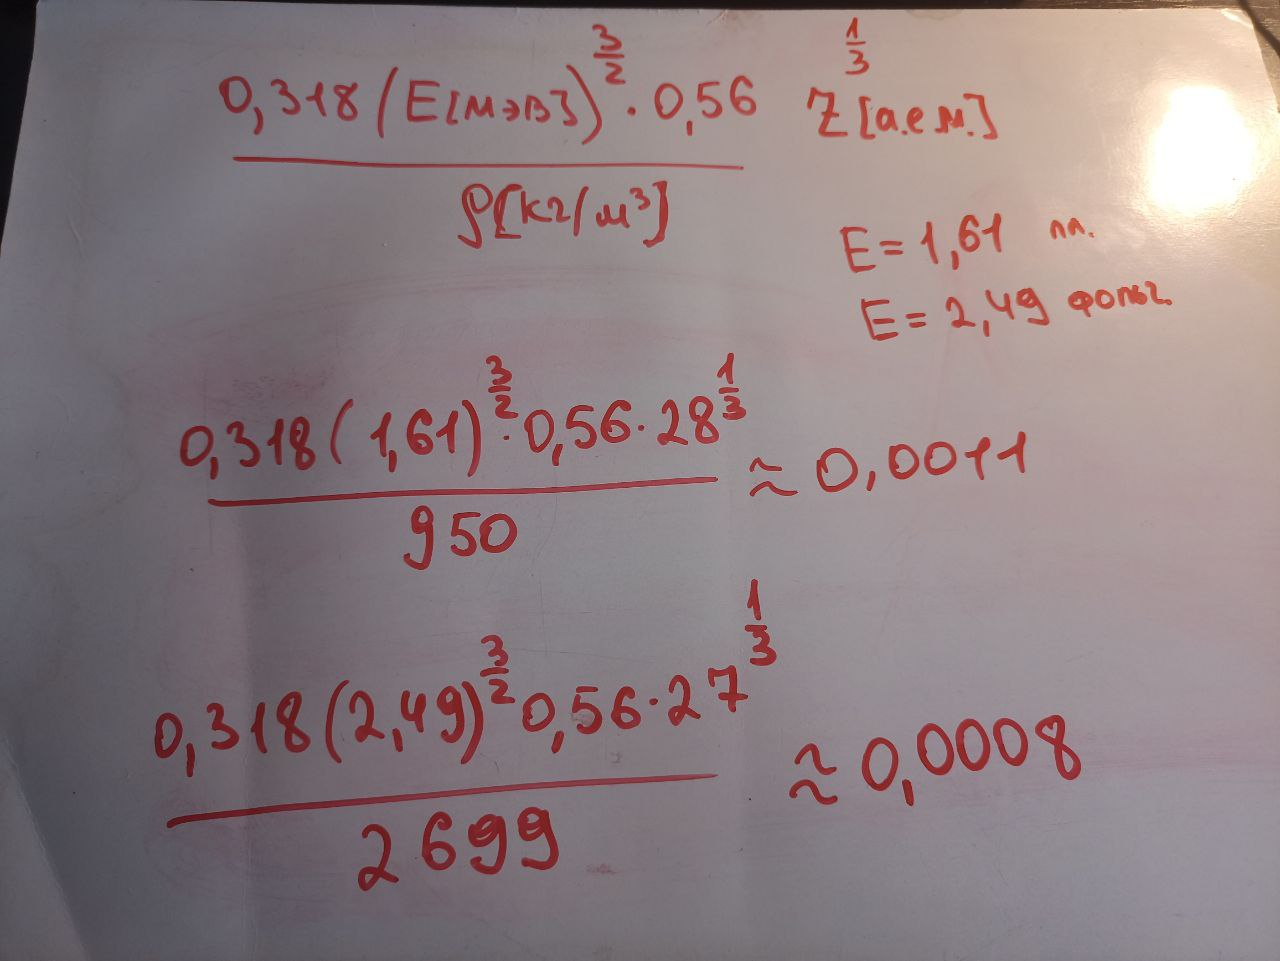 0,318(E[МэВ])^{3/2} · 0,56 Z[а.е.м.]^{1/3}
ρ[кг/м³]
E = 1,61 пл.
E = 2,49 фольг.
0,318(1,61)^{3/2} · 0,56 · 28^{1/3}
950
≈ 0,0011
0,318(2,49)^{3/2} 0,56 · 27^{1/3}
2699
≈ 0,0008